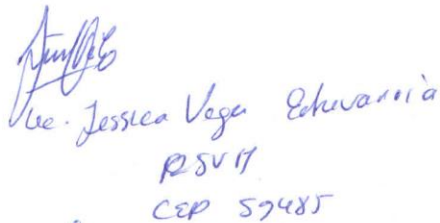 Lic. Jessica Vega Echevarria
CEP 59485